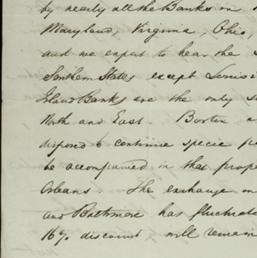 by nearly all the Banks in
Maryland, Virginia, Ohio,
and we expect to hear the
Southern States except
Island Banks are the only
North and East. Boston
disposed to continue specie
be accompanied in that
Orleans. The exchange on
and Baltimore has
16% discount & will remain